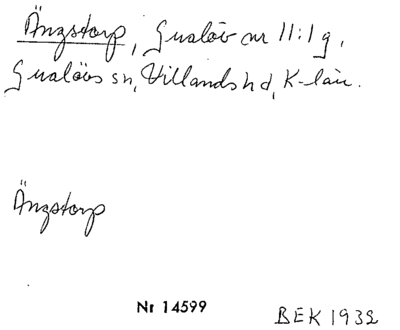 Ängstorp, Gualöv nr 11:1 g,
Gualövs sn, Villands hd, K-län.
Ängstorp
Nr 14599
BEK 1932